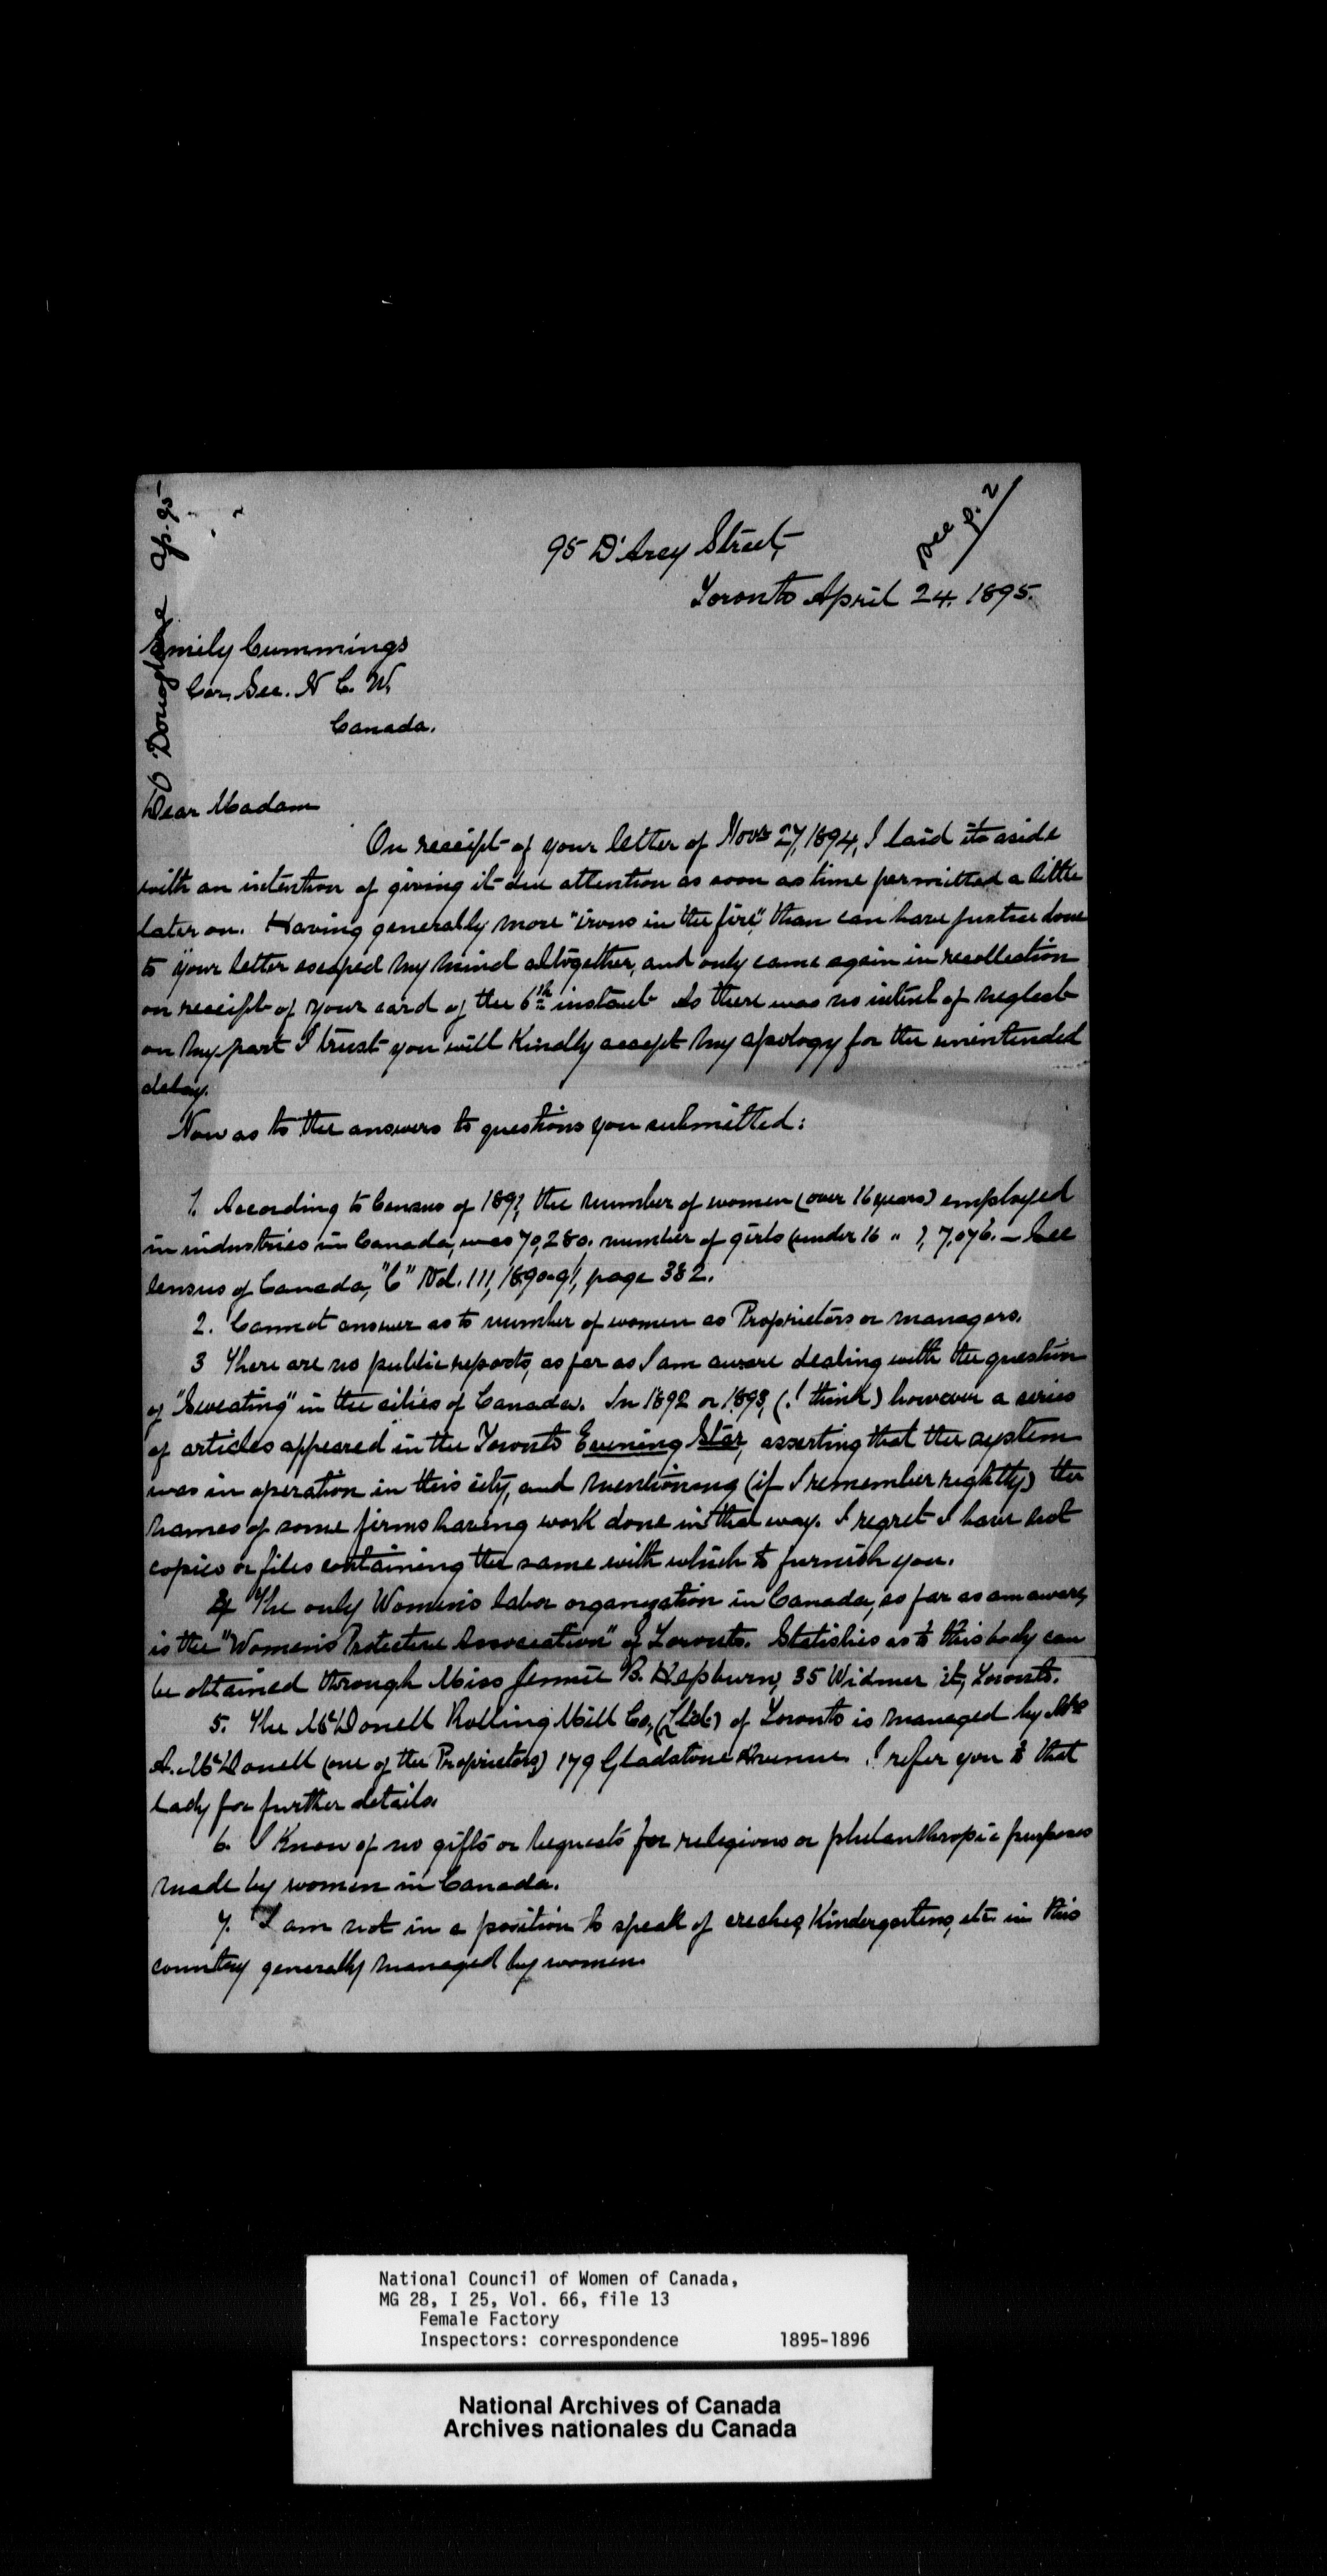 see p. 2
O'Donoghue Ap. 95
95 D'Arcy Street,
Toronto April 24. 1895.
Emily Cummings
Cor. Sec. N C. W,
Canada.
Dear Madam
On receipt of your letter of Novr 27, 1894, I laid it aside
with an intention of giving it due attention as soon as time permitted a little
later on. Having generally more "irons in the fire", than can have justice done
to your letter escaped my mind altogether, and only came again in recollection
on receipt of your card of the 6th instant. As there was no intent of neglect
on my part I trust you will kindly accept my apology for the unintended
delay.
Now as to the answers to questions you submitted:
1. According to Census of 1891, the number of women (over 16 years) employed
in industries in Canada, was 70,280. number of girls (under 16 " ), 7,076. – See
Census of Canada, "C" Vol. 111, 1890-91, page 382.
2. Cannot answer as to number of women as Proprietors or managers.
3 There are no public reports, as far as I am aware dealing with the question
of "Sweating" in the cities of Canada. In 1892 or 1893, (I think) however a series
of articles appeared in the Toronto Evening Star, asserting that the system
was in operation in this city, and mentioning (if I remember rightly) the
names of some firms having work done in that way. I regret I have not
copies or files containing the same with which to furnish you.
4 The only Women's labor organization in Canada, so far as am aware,
is the "Women's Protective Association" of Toronto. Statistics as to this body can
be obtained through Miss Jennie B. Hepburn, 35 Widmer st, Toronto.
5. The McDonell Rolling Mill Co, (Ltd.) of Toronto is managed by Mrs
A. McDonell (one of the Proprietors) 179 Gladstone Avenue. I refer you to that
lady for further details.
6. I know of no gifts or bequests for religious or philanthropic purposes
made by women in Canada.
7. I am not in a position to speak of creches, Kindergartens, etc in this
country generally managed by women.
National Council of Women of Canada,
MG 28, I 25, Vol. 66, file 13
Female Factory
Inspectors: correspondence 1895-1896
National Archives of Canada
Archives nationales du Canada